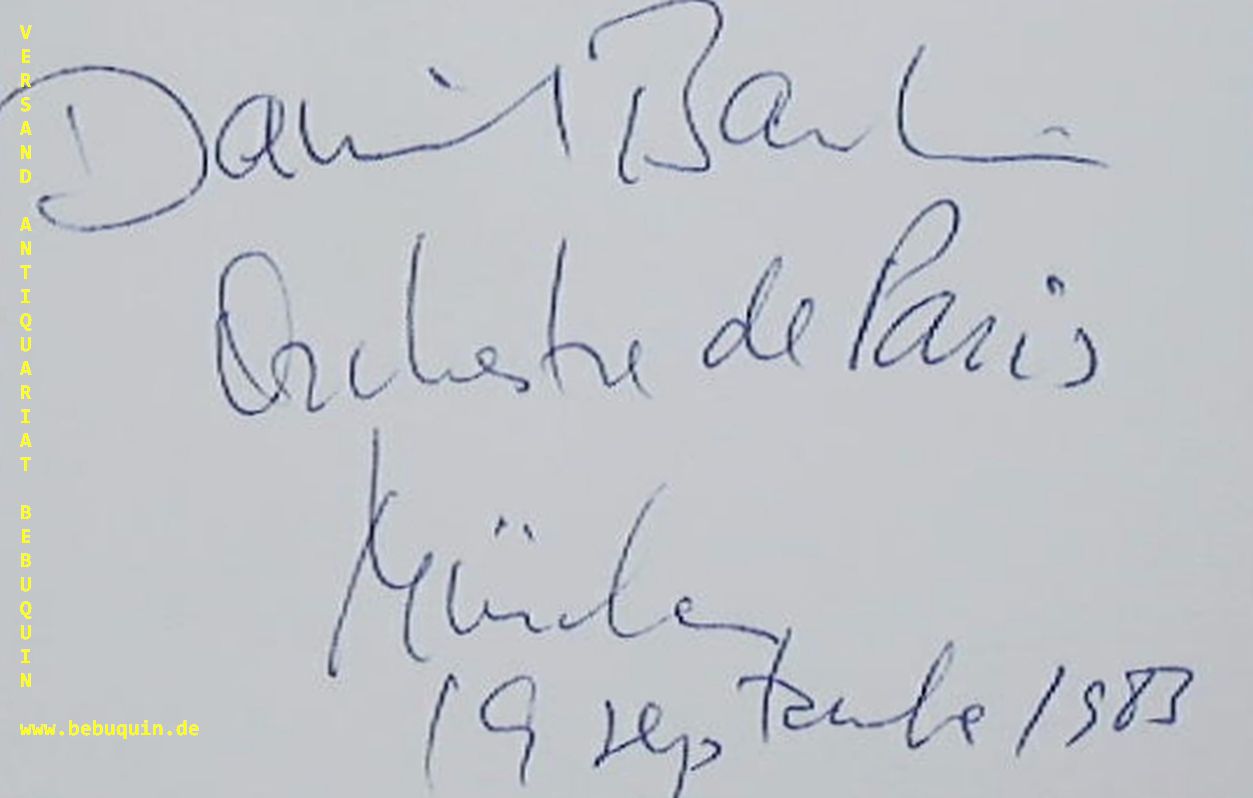 VERSAND ANTIQUARIAT BEBUQUIN
Daniel
Orchestre de Paris
München
19 septembre 1983
www.bebuquin.de